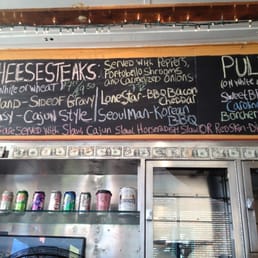 CHEESESTEAKS: Served with Peppers,
Portobello Shrooms
White or wheat $9.50 and Carmelized Onions
land - Side of Gravy Lone Star - BBQ Bacon
Cheddar
easy - Cajun Style Seoul Man - Korean
BBQ
are served with Slaw: Cajun Slaw, Horseradish Slaw OR Red Skin
PUL
(on white
Sweet B
Carolin
Borche